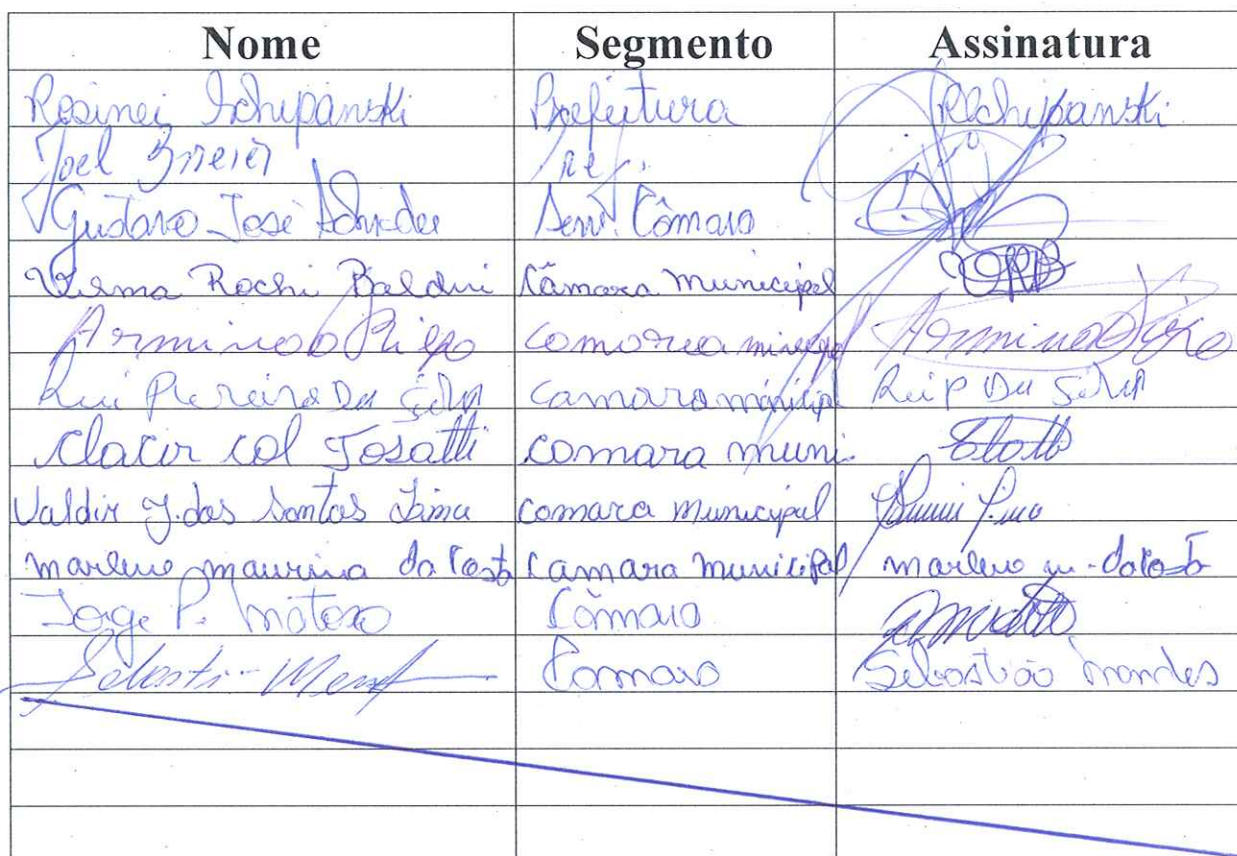 Nome Segmento Assinatura
Rosinei Schipanski Prefeitura RSchipanski
Joel
Gustavo José Serv. Câmara
Vilma Rochi Baldini Câmara Municipal
Armindo comorca
Rui Pereira Da Silva camaro municipal Rui P Da Silva
Clacir col Tosatti comara muni.
Valdir J. dos Santos Lima comara municipal
marlene maurina da Costa Camara Municipal marlene m. da Costa
Jorge P. Câmara
Câmara Sebastião Mendes